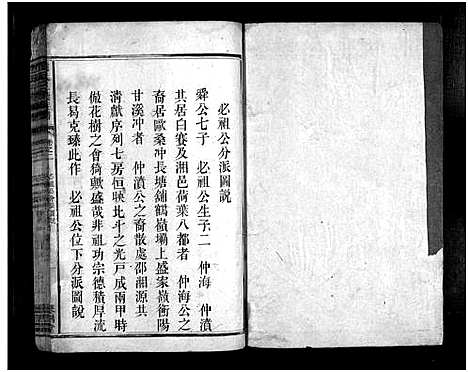 必祖公分派圖說
舜公七子　必祖公生子二　仲海　仲瀆
其居白賽及湘邑荷葉八都者　仲海公之
裔居歐桑冲長塘鋪鶴嶺壩上盛家嶺衡陽
甘溪冲者　仲瀆公之裔散處邵湘源共
清獻序列七房恒映比斗之光戸成兩甲時
倣花樹之會猗歟盛哉非祖功宗德積厚流
長曷克臻此作　必祖公位下分派圖說